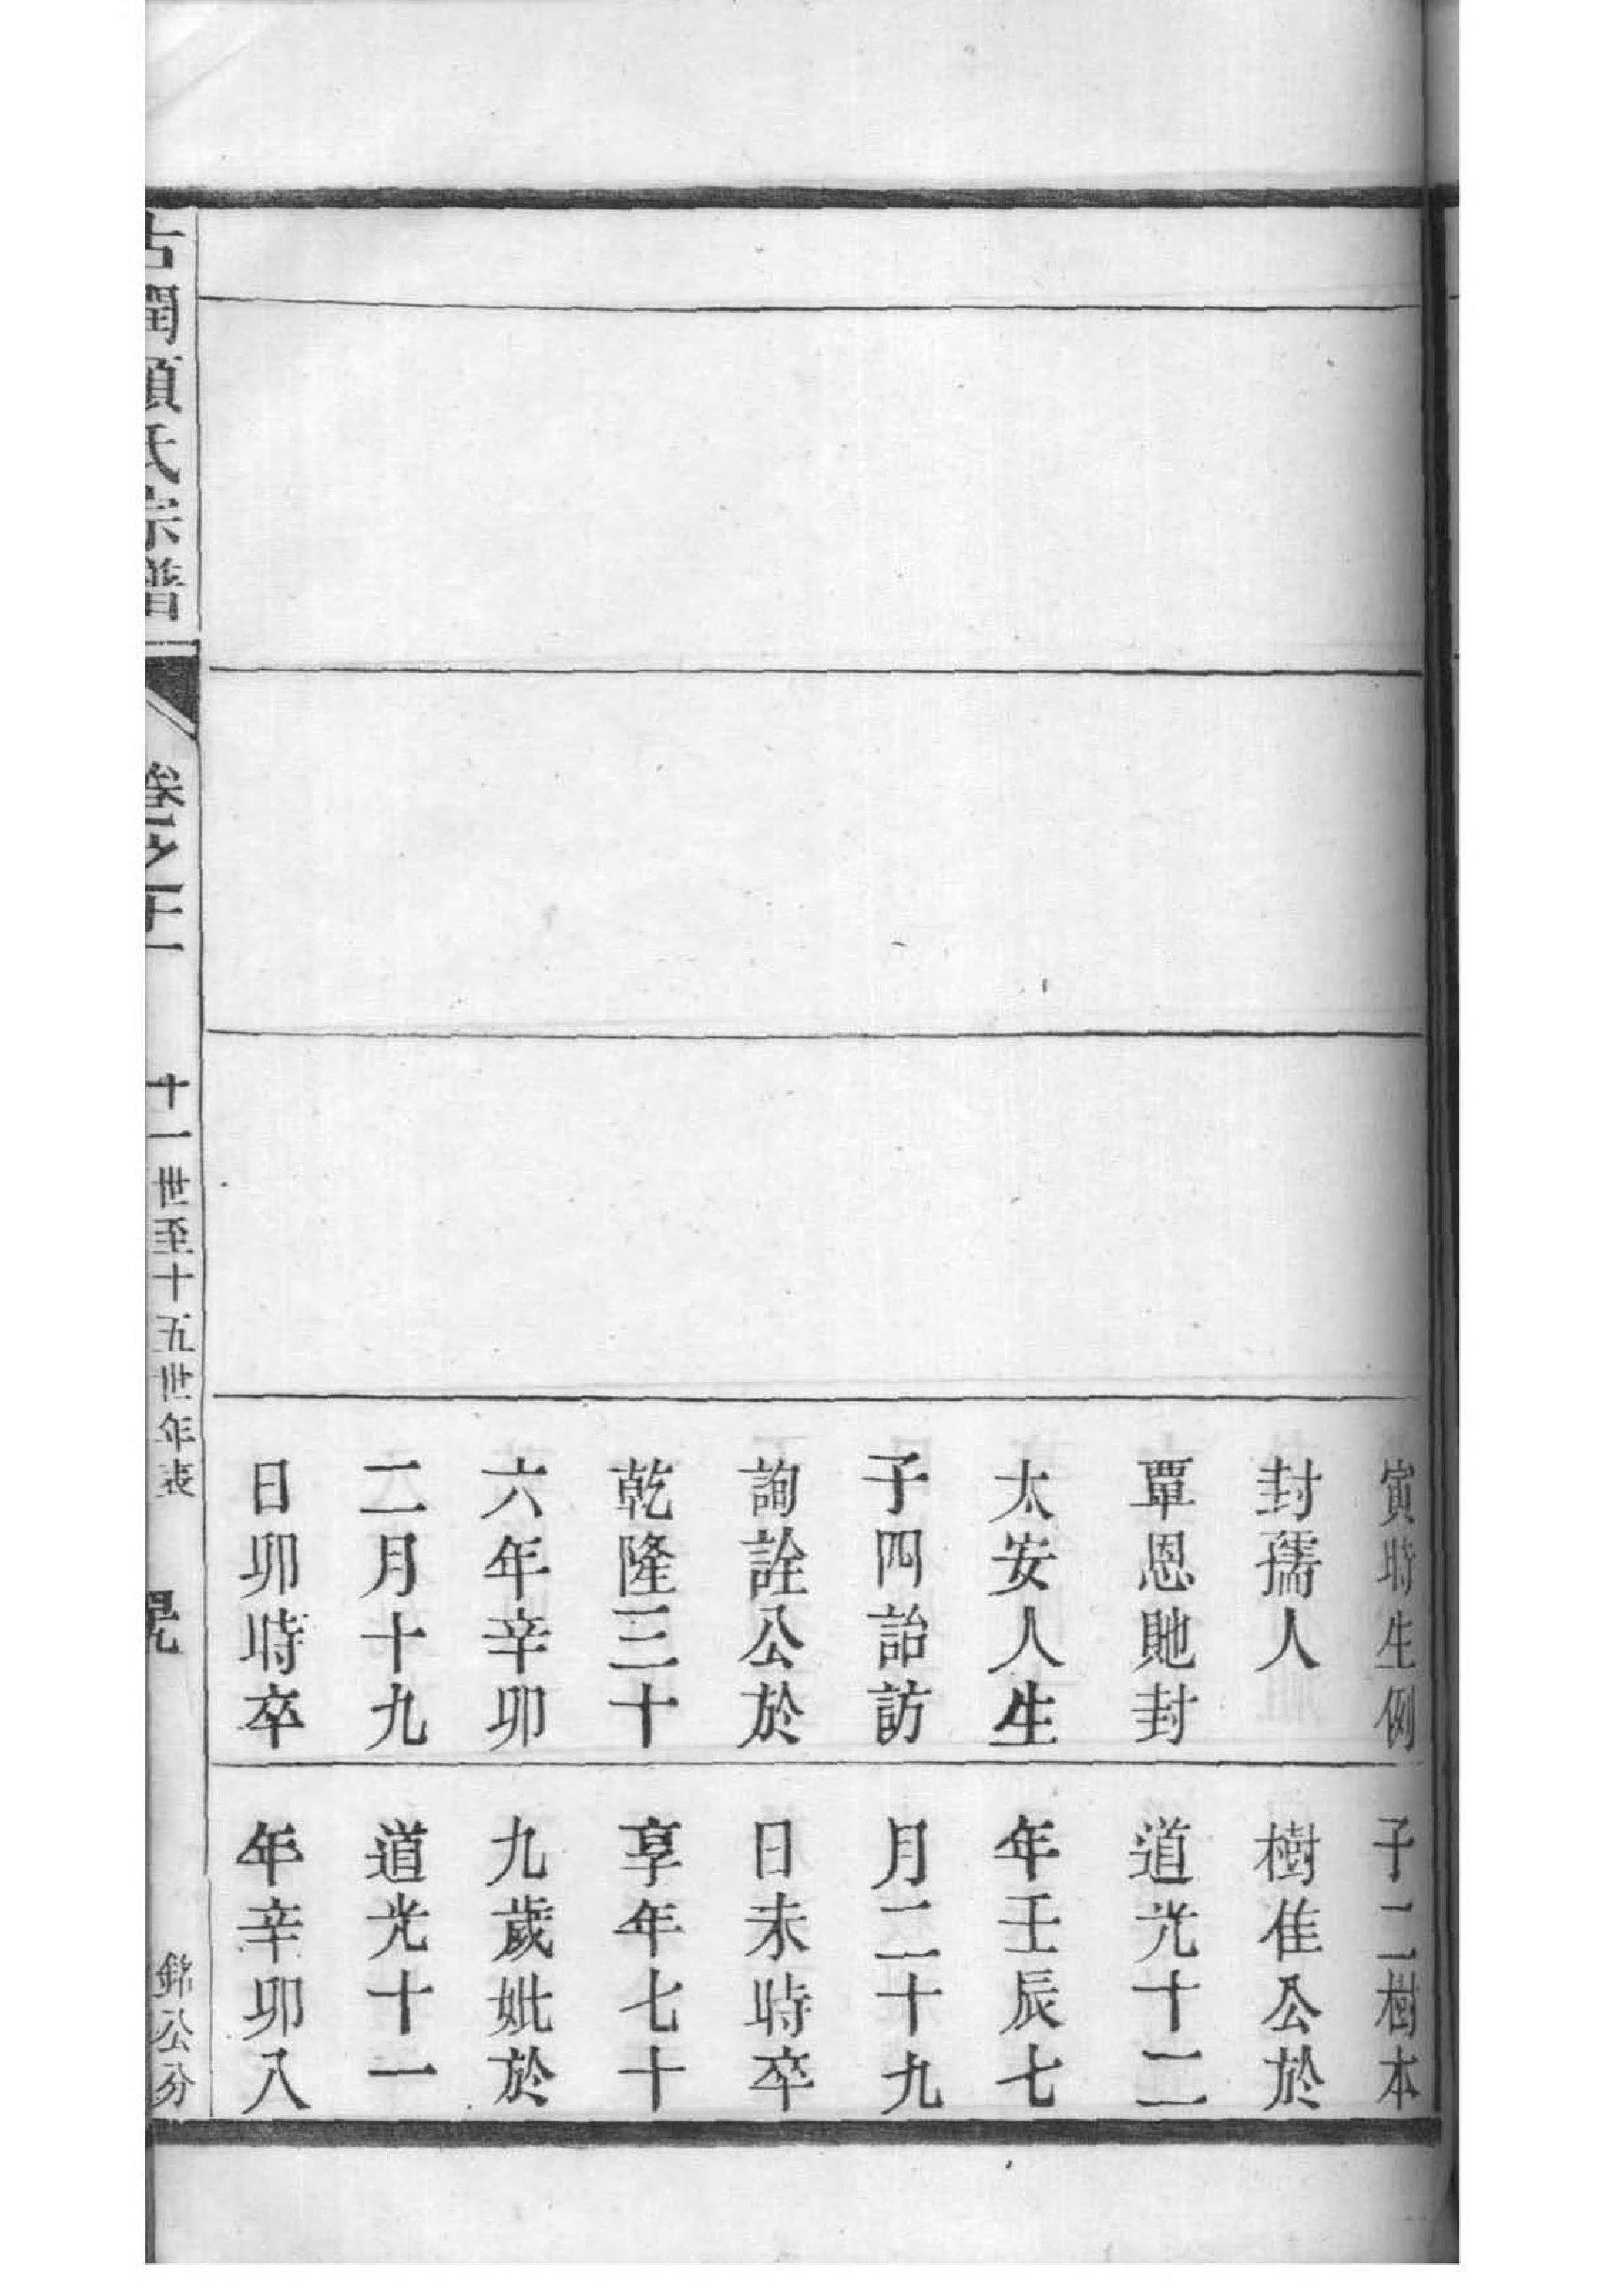 寅時生例
封孺人
覃恩貤封
太安人生
子四詒訪
詢詮公於
乾隆三十
六年辛卯
二月十九
日卯時卒
子二樹本
樹佳公於
道光十二
年壬辰七
月二十九
日未時卒
享年七十
九歲妣於
道光十一
年辛卯八
古潤顧氏宗譜
卷之
十一世至十五世年表
銘公分